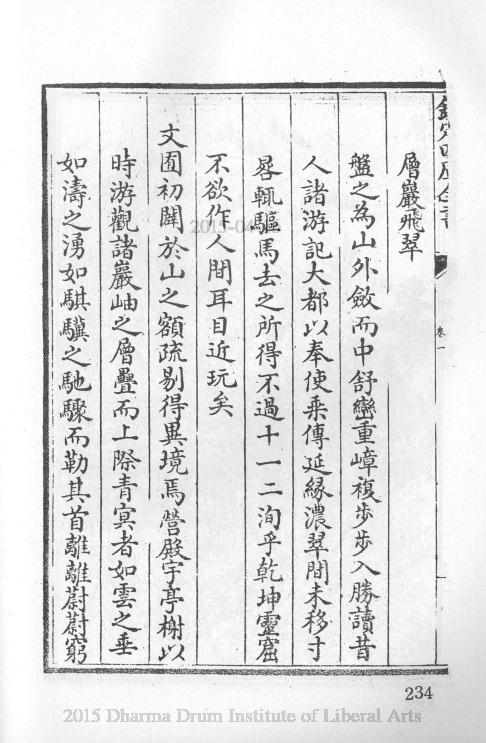 欽定四庫全書
卷一
層巖飛翠
盤之為山外斂而中舒巒重嶂複步步入勝讀昔
人諸游記大都以奉使乘傳延緣濃翠間未移寸
晷輒驅馬去之所得不過十一二洵乎乾坤靈窟
不欲作人間耳目近玩矣
文囿初闢於山之額疏剔得異境焉營殿宇亭榭以
時游觀諸巖岫之層疊而上際青冥者如雲之垂
如濤之湧如騏驥之馳驟而勒其首離離蔚蔚窮
234
2015 Dharma Drum Institute of Liberal Arts